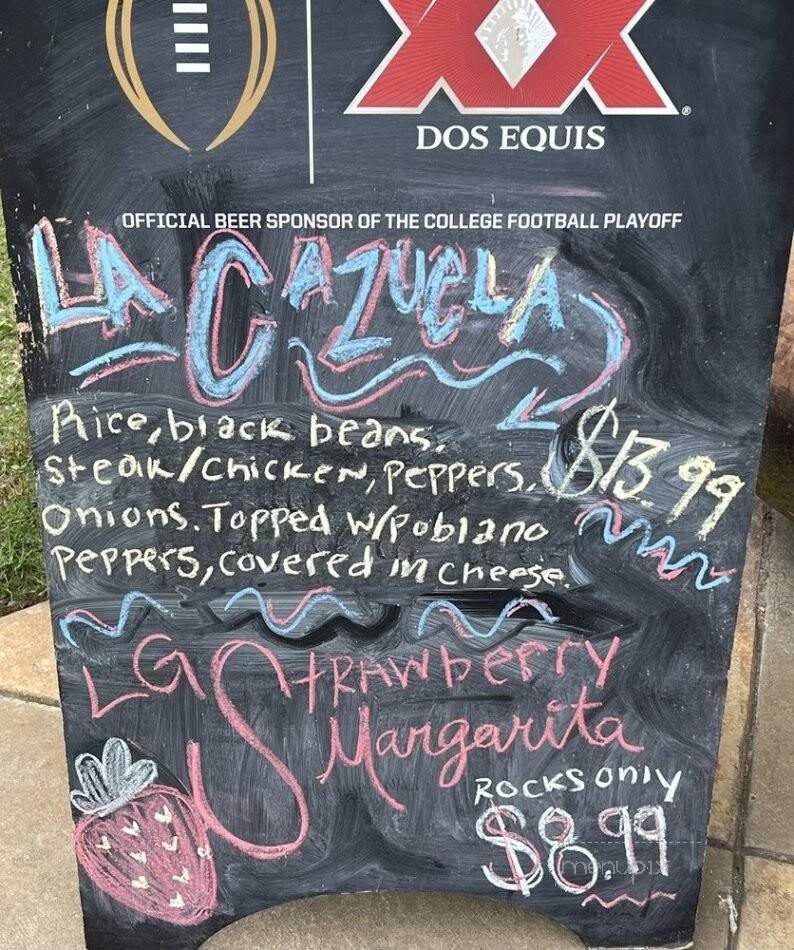 XX
®
DOS EQUIS
OFFICIAL BEER SPONSOR OF THE COLLEGE FOOTBALL PLAYOFF
LA CAZUELA
Rice, black beans,
Steak/Chicken, Peppers, $13.99
Onions. Topped w/Poblano
Peppers, covered in cheese.
LG Strawberry
Margarita
Rocks only
$8.99
menupix